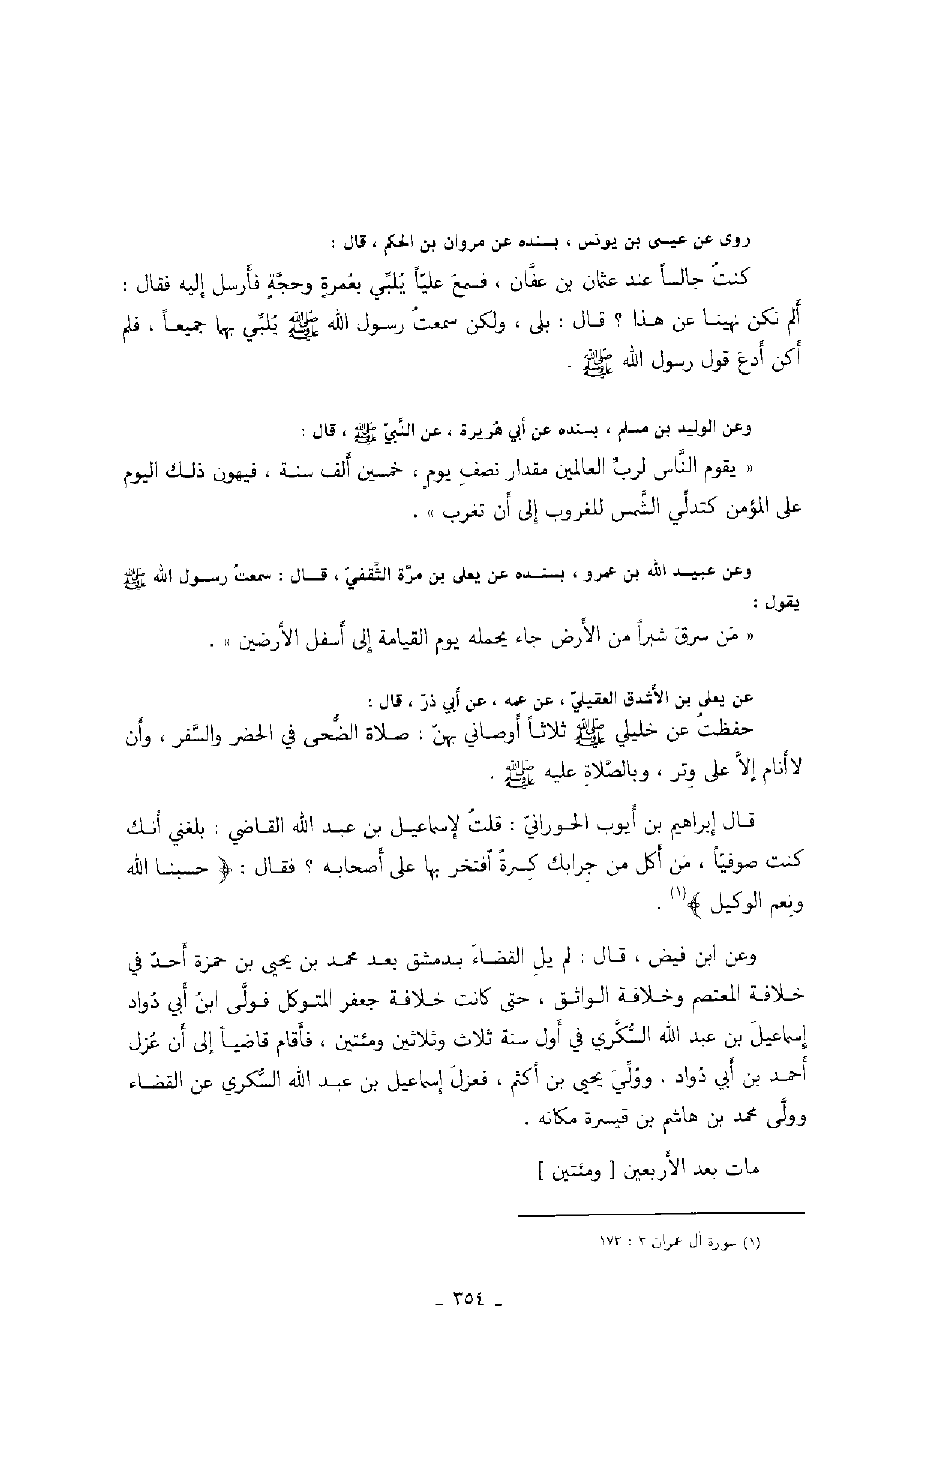 روى عن عيسى بن يونس ، بسنده عن مروان بن الحكم ، قال :
كنتُ جالساً عند عثمان بن عفَّان ، فسمعَ عليّاً يُلبِّي بعُمرةٍ وحجَّةٍ فأرسل إليه فقال :
ألم نكن نهينا عن هذا ؟ قال : بلى ، ولكن سمعتُ رسول الله ﷺ يُلبِّي بها جميعاً ، فلم
أكن أدعَ قول رسول الله ﷺ .
وعن الوليد بن مسلم ، بسنده عن أبي هُريرة ، عن النَّبيّ ﷺ ، قال :
« يقوم النَّاس لربِّ العالمين مقدار نصفِ يومٍ ، خمسين ألف سنة ، فيهون ذلك اليوم
على المؤمن كتدلِّي الشَّمس للغروب إلى أن تغرب » .
وعن عبيد الله بن عمرو ، بسنده عن يعلى بن مرَّة الثَّقفيّ ، قال : سمعتُ رسول الله ﷺ
يقول :
« مَن سرقَ شبراً من الأرض جاء يحمله يوم القيامة إلى أسفل الأرضين » .
عن يعلى بن الأشدق العقيليّ ، عن عمه ، عن أبي ذرّ ، قال :
حفظتُ عن خليلي ﷺ ثلاثاً أوصاني بهنّ : صلاة الضُّحى في الحضر والسَّفر ، وأن
لا أنام إلاَّ على وِتر ، وبالصَّلاةِ عليه ﷺ .
قال إبراهيم بن أيوب الحورانيّ : قلتُ لإسماعيل بن عبد الله القاضي : بلغني أنك
كنت صوفيّاً ، مَن أكل من جرابك كِسرةً افتخر بها على أصحابه ؟ فقال : ﴿ حسبنا الله
ونعم الوكيل ﴾(١) .
وعن ابن فيض ، قال : لم يلِ القضاءَ بدمشق بعد محمد بن يحيى بن حمزة أحدٌ في
خلافة المعتصم وخلافة الواثق ، حتى كانت خلافة جعفر المتوكل فولَّى ابنُ أبي دُواد
إسماعيلَ بن عبد الله السُّكَّري في أول سنة ثلاث وثلاثين ومئتين ، فأقام قاضياً إلى أن عُزل
أحمد بن أبي دُواد . ووُلِّيَ يحيى بن أكثم ، فعزلَ إسماعيل بن عبد الله السُّكري عن القضاء
وولَّى محمد بن هاشم بن مَيسرة مكانه .
مات بعد الأربعين [ ومئتين ]
(١) سورة آل عمران ٣ : ١٧٣
- ٣٥٤ -